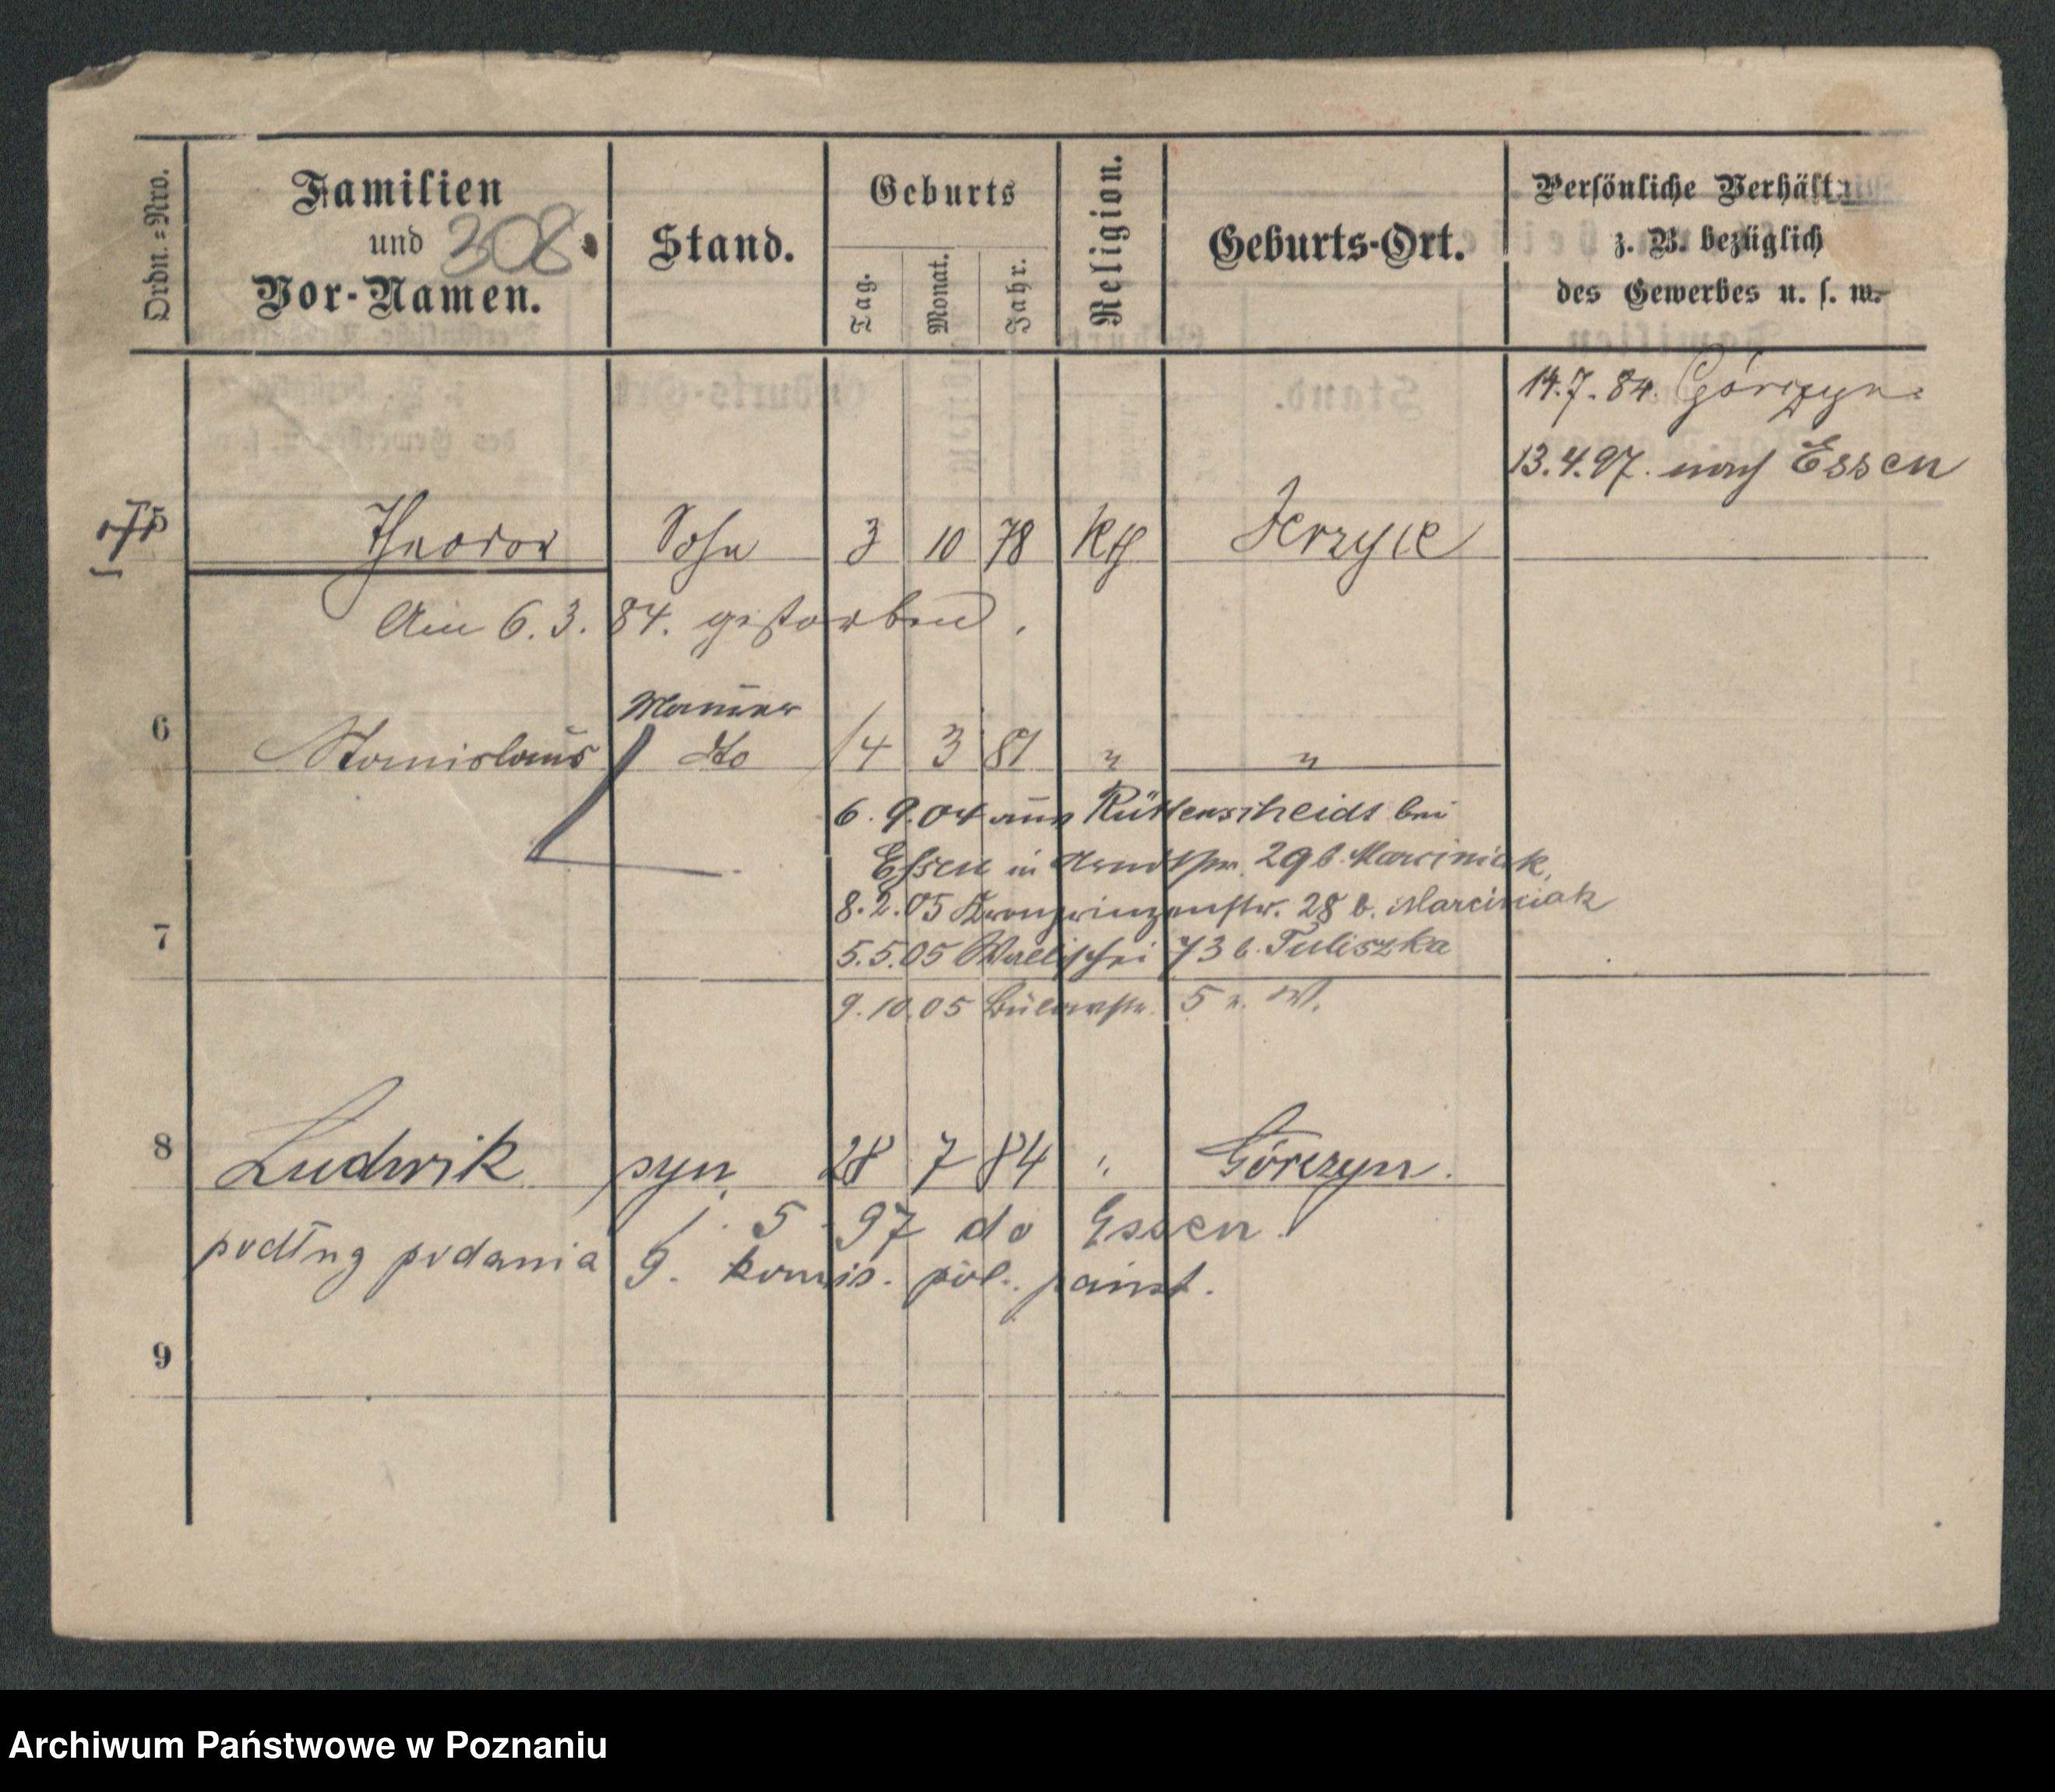 Ordn.=Nro.
Familien
und
Vor-Namen.
308
Stand.
Geburts
Tag.
Monat.
Jahr.
Religion.
Geburts-Ort.
Persönliche Verhältniss
z. B. bezüglich
des Gewerbes u. s. w.
14.7.84. Górczyn
13.4.97. nach Essen
5 Theodor Sohn 3 10 78 kth Jerzyce
Am 6.3.84. gestorben.
Maurer
6 Stanislaus dto 14 3 81 " "
6.9.04 aus Rüttenscheidt bei
Essen in Arndtstr. 29 b. Marciniak,
8.2.05 Kronprinzenstr. 28 b. Marciniak
7
5.5.05 Wallischei 73 b. Tuliszka
9.10.05 Bülowstr. 5 W.
8 Ludwik syn 28 7 84 " Górczyn.
1. 5. 97 do Essen.
podług podania 9. komis. pol. państ.
9
Archiwum Państwowe w Poznaniu